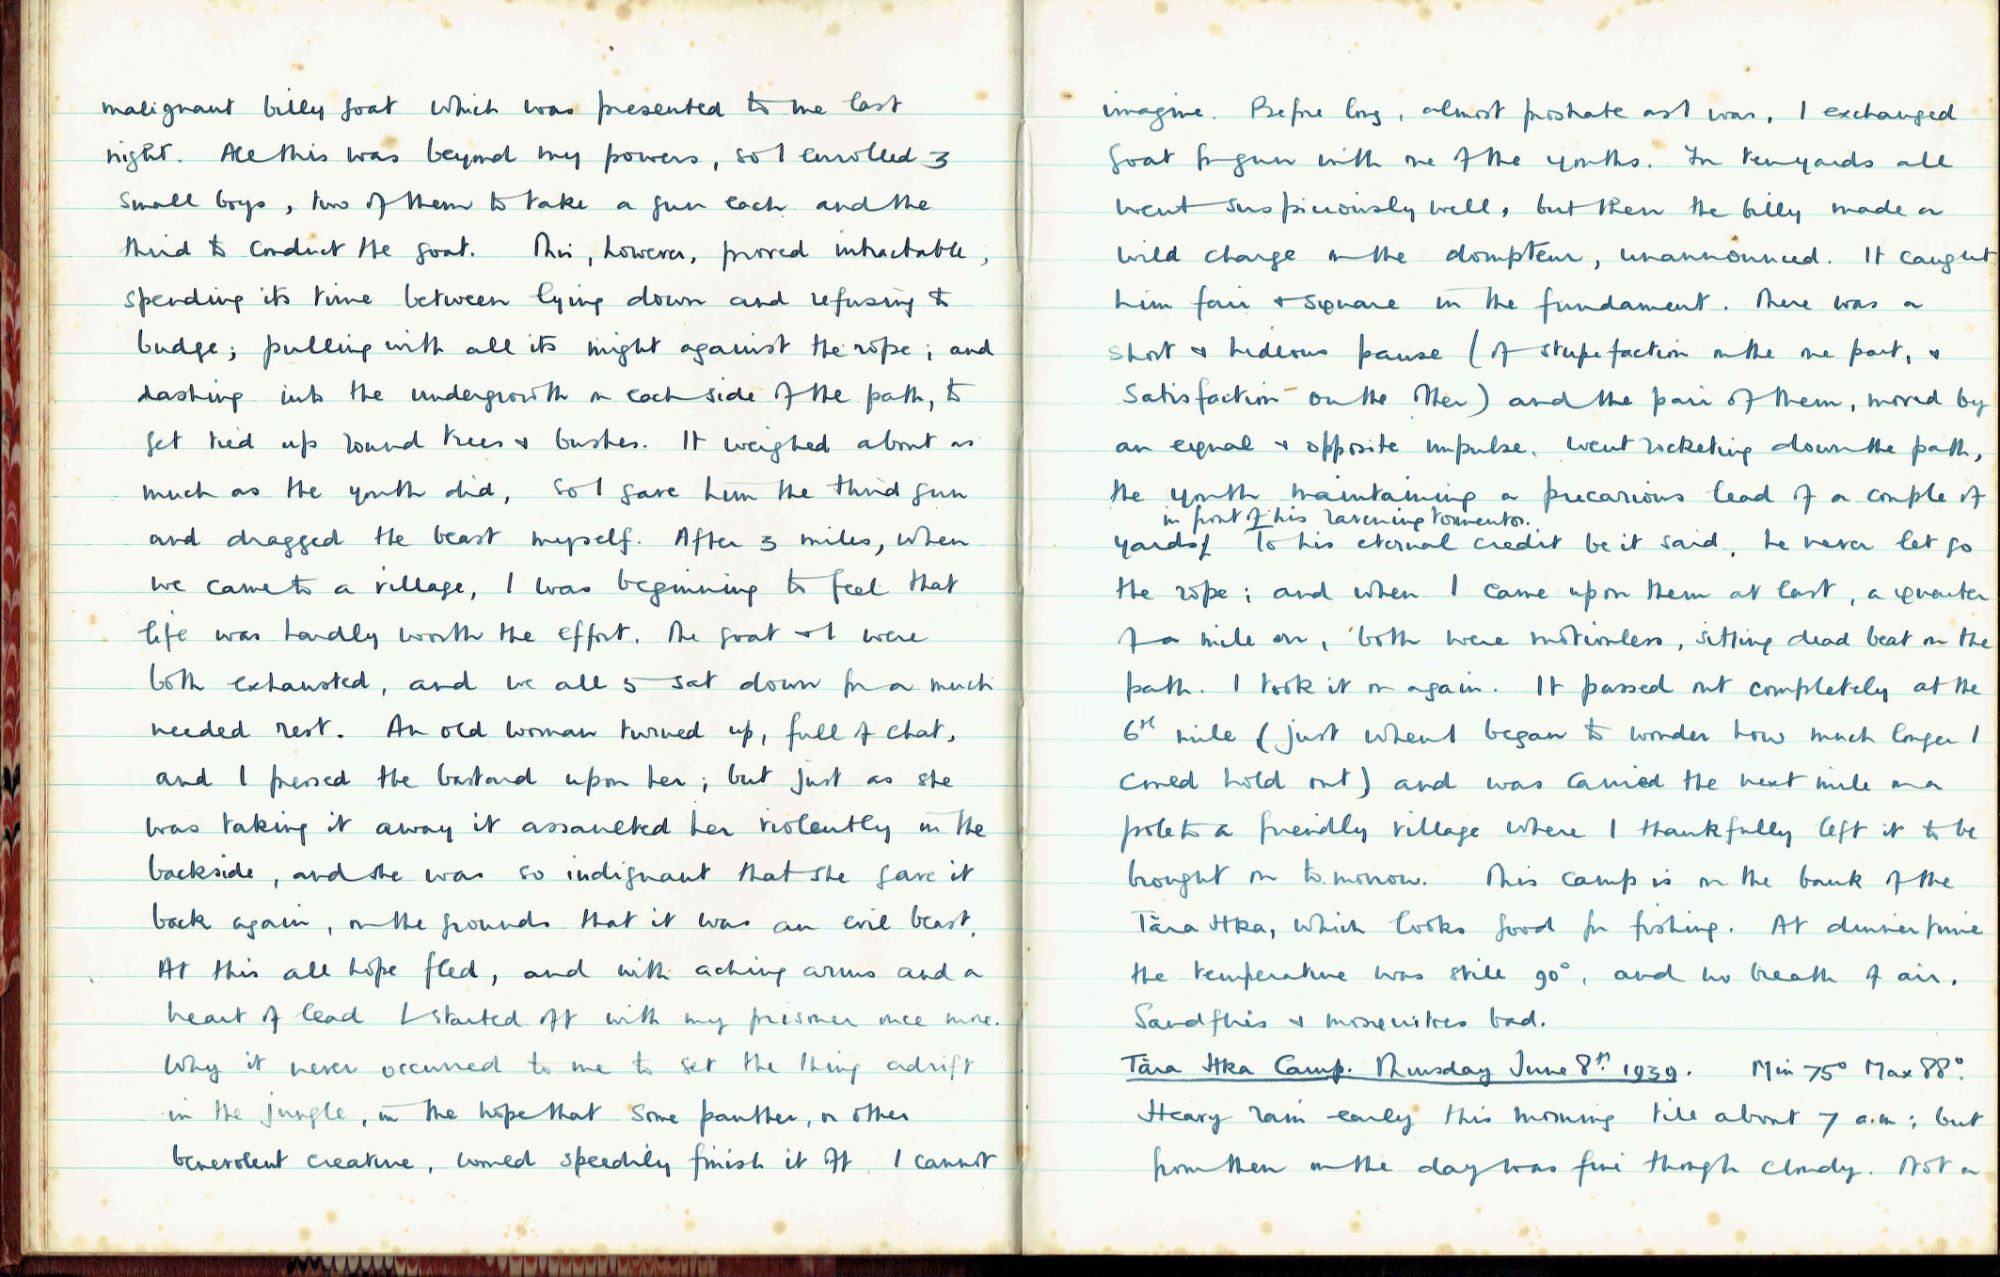 malignant billy goat which was presented to me last
night. All this was beyond my powers, so I enrolled 3
small boys, two of them to take a gun each and the
third to conduct the goat. This, however, proved intractable,
spending its time between lying down and refusing to
budge; pulling with all its might against the rope; and
dashing into the undergrowth on each side of the path, to
get tied up round trees & bushes. It weighed about as
much as the youth did, so I gave him the third gun
and dragged the beast myself. After 3 miles, when
we came to a village, I was beginning to feel that
life was hardly worth the effort. The goat & I were
both exhausted, and we all 5 sat down for a much
needed rest. An old woman turned up, full of chat,
and I pressed the bastard upon her; but just as she
was taking it away it assaulted her violently in the
backside, and she was so indignant that she gave it
back again, on the grounds that it was an evil beast.
At this all hope fled, and with aching arms and a
heart of lead I started off with my prisoner once more.
Why it never occurred to me to set the thing adrift
in the jungle, in the hope that some panther, or other
benevolent creature, would speedily finish it off I cannot
imagine. Before long, almost prostrate as I was, I exchanged
goat for gun with one of the youths. For ten yards all
went suspiciously well, but then the billy made a
wild charge on the dompteur, unannounced. It caught
him fair & square in the fundament. There was a
short & hideous pause (of stupefaction on the one part, &
satisfaction on the other) and the pair of them, moved by
an equal & opposite impulse, went rocketing down the path,
the youth maintaining a precarious lead of a couple of
in front of his ravening tormentor.
yards. To his eternal credit be it said, he never let go
the rope; and when I came upon them at last, a quarter
of a mile on, both were motionless, sitting dead beat on the
path. I took it on again. It passed out completely at the
6th mile (just when I began to wonder how much longer I
could hold out) and was carried the next mile on a
pole to a friendly village where I thankfully left it to be
brought on to.morrow. This camp is on the bank of the
Tāra Hka, which looks good for fishing. At dinner time
the temperature was still 90°, and no breath of air.
Sandflies & mosquitoes bad.
Tāra Hka Camp. Thursday June 8th 1939. Min 75° Max 88°.
Heavy rain early this morning till about 7 a.m; but
from then on the day was fine though cloudy. Not a